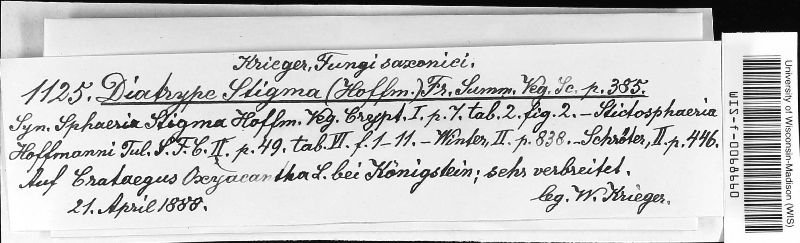 Krieger, Fungi saxonici.
1125. Diatrype Stigma (Hoffm.) Fr. Summ. Veg. Sc. p. 385.
Syn. Sphaeria Stigma Hoffm. Veg. Crypt. I. p. 7. tab. 2. fig. 2. – Stictosphaeria
Hoffmanni Tul. S. F. C. II. p. 49. tab. VI. f. 1–11. – Winter, II. p. 838. – Schröter, II. p. 446.
Auf Crataegus Oxyacantha L. bei Königstein; sehr verbreitet.
21. April 1888.
leg. W. Krieger.
University of Wisconsin-Madison (WIS)